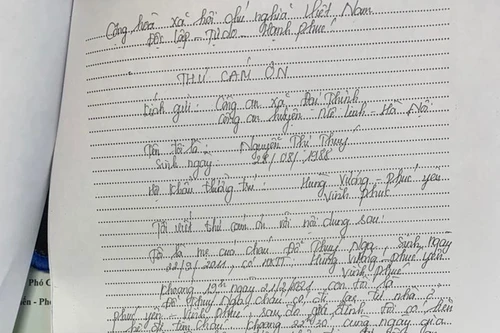 Cộng hoà xã hội chủ nghĩa Việt Nam
Độc lập - Tự do - Hạnh Phúc
THƯ CẢM ƠN
Kính gửi: Công an xã Đại Thịnh
Công an huyện - Mê Linh - Hà Nội
Tên tôi là: Nguyễn Thị Thuý
Sinh ngày 28/08/1988
Hộ khẩu thường trú: Hùng Vương - Phúc Yên
Vĩnh Phúc
Tôi viết thư cảm ơn với nội dung sau:
Tôi là mẹ của cháu Đỗ Thuý Nga, Sinh ngày
22/2/2011, có HKTT: Hùng Vương - Phúc Yên
Vĩnh Phúc
Khoảng 19h ngày 2/12/2021 con tôi là
Đỗ Thuý Nga cháu có đi lạc từ nhà ở
Phúc Yên - Vĩnh Phúc, sau đó gia đình tôi có
tìm cháu khoảng 22h30 cùng ngày qua
Phố